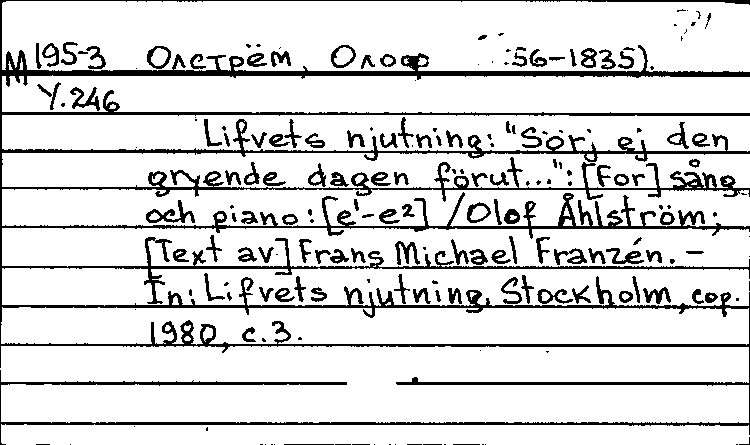 М195-3 Олстрём, Олоф 56-1835).
Y.246
Lifvets njutning: "Sörj ej den
gryende dagen förut...": [För] sång
och piano: [e¹-e²] / Olof Åhlström;
[Text av] Frans Michael Franzén. -
In: Lifvets njutning. Stockholm, cop.
1980, с.3.